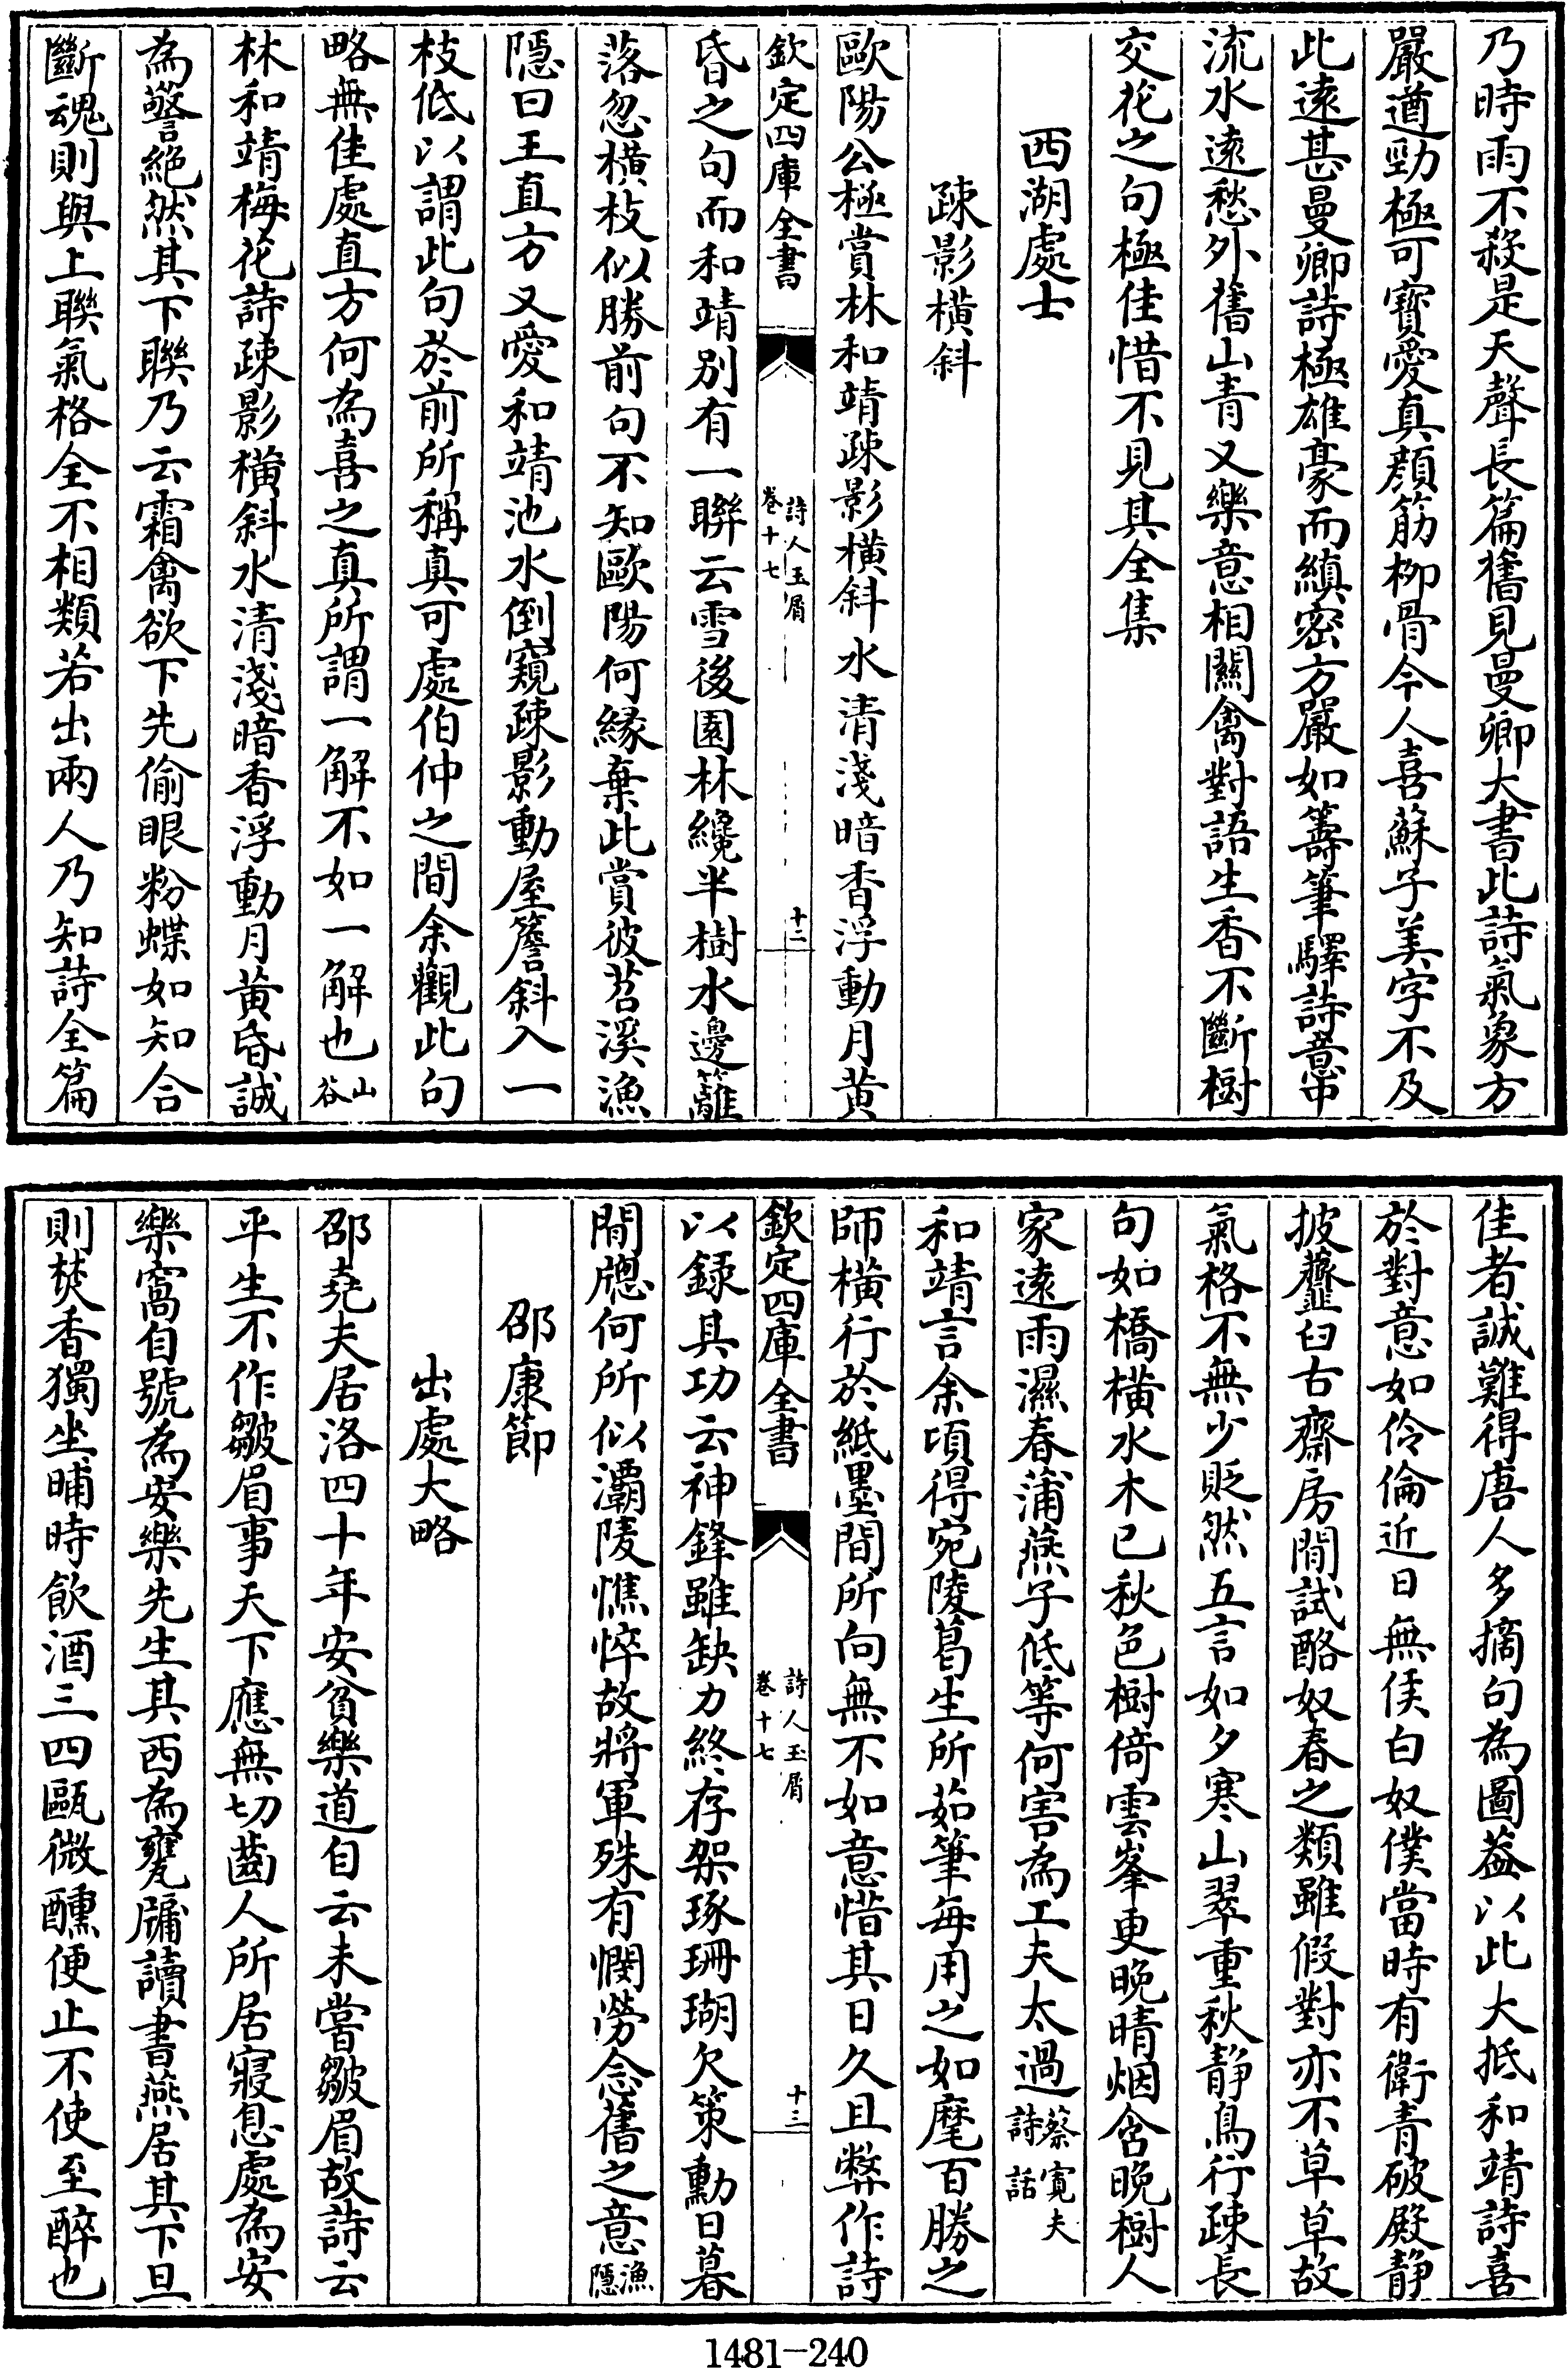 乃時雨不殺是天聲長篇舊見曼卿大書此詩氣象方
嚴遒勁極可寳愛真顔筋柳骨今人喜蘇子美字不及
此遠甚曼卿詩極雄豪而縝密方嚴如籌筆驛詩意中
流水遠愁外舊山青又樂意相關禽對語生香不斷樹
交花之句極佳惜不見其全集
西湖處士
疎影橫斜
歐陽公極賞林和靖疎影橫斜水清淺暗香浮動月黄
欽定四庫全書
詩人玉屑
卷十七
十二
昏之句而和靖别有一聯云雪後園林纔半樹水邊籬
落忽橫枝似勝前句不知歐陽何緣棄此賞彼苕溪漁
隱曰王直方又愛和靖池水倒窺疎影動屋簷斜入一
枝低以謂此句於前所稱真可處伯仲之間余觀此句
略無佳處直方何為喜之真所謂一解不如一解也山谷
林和靖梅花詩疎影橫斜水清淺暗香浮動月黄昏誠
為警絶然其下聯乃云霜禽欲下先偷眼粉蝶如知合
斷魂則與上聯氣格全不相類若出兩人乃知詩全篇
佳者誠難得唐人多摘句為圖葢以此大抵和靖詩喜
於對意如伶倫近日無侯白奴僕當時有衛青破殿静
披虀臼古齋房閒試酪奴春之類雖假對亦不草草故
氣格不無少貶然五言如夕寒山翠重秋静鳥行疎長
句如橋橫水木已秋色樹倚雲峯更晚晴烟含晚樹人
家遠雨濕春蒲燕子低等何害為工夫太過蔡寛夫詩話
和靖言余頃得宛陵葛生所茹筆每用之如麾百勝之
師橫行於紙墨間所向無不如意惜其日久且弊作詩
欽定四庫全書
詩人玉屑
卷十七
十三
以録其功云神鋒雖缺力終存架琢珊瑚欠策勳日暮
閒牕何所似灞陵憔悴故將軍殊有憫勞念舊之意漁隱
邵康節
出處大略
邵堯夫居洛四十年安貧樂道自云未嘗皺眉故詩云
平生不作皺眉事天下應無切齒人所居寢息處為安
樂窩自號為安樂先生其西為甕牖讀書燕居其下旦
則焚香獨坐晡時飲酒三四甌微醺便止不使至醉也
1481-240